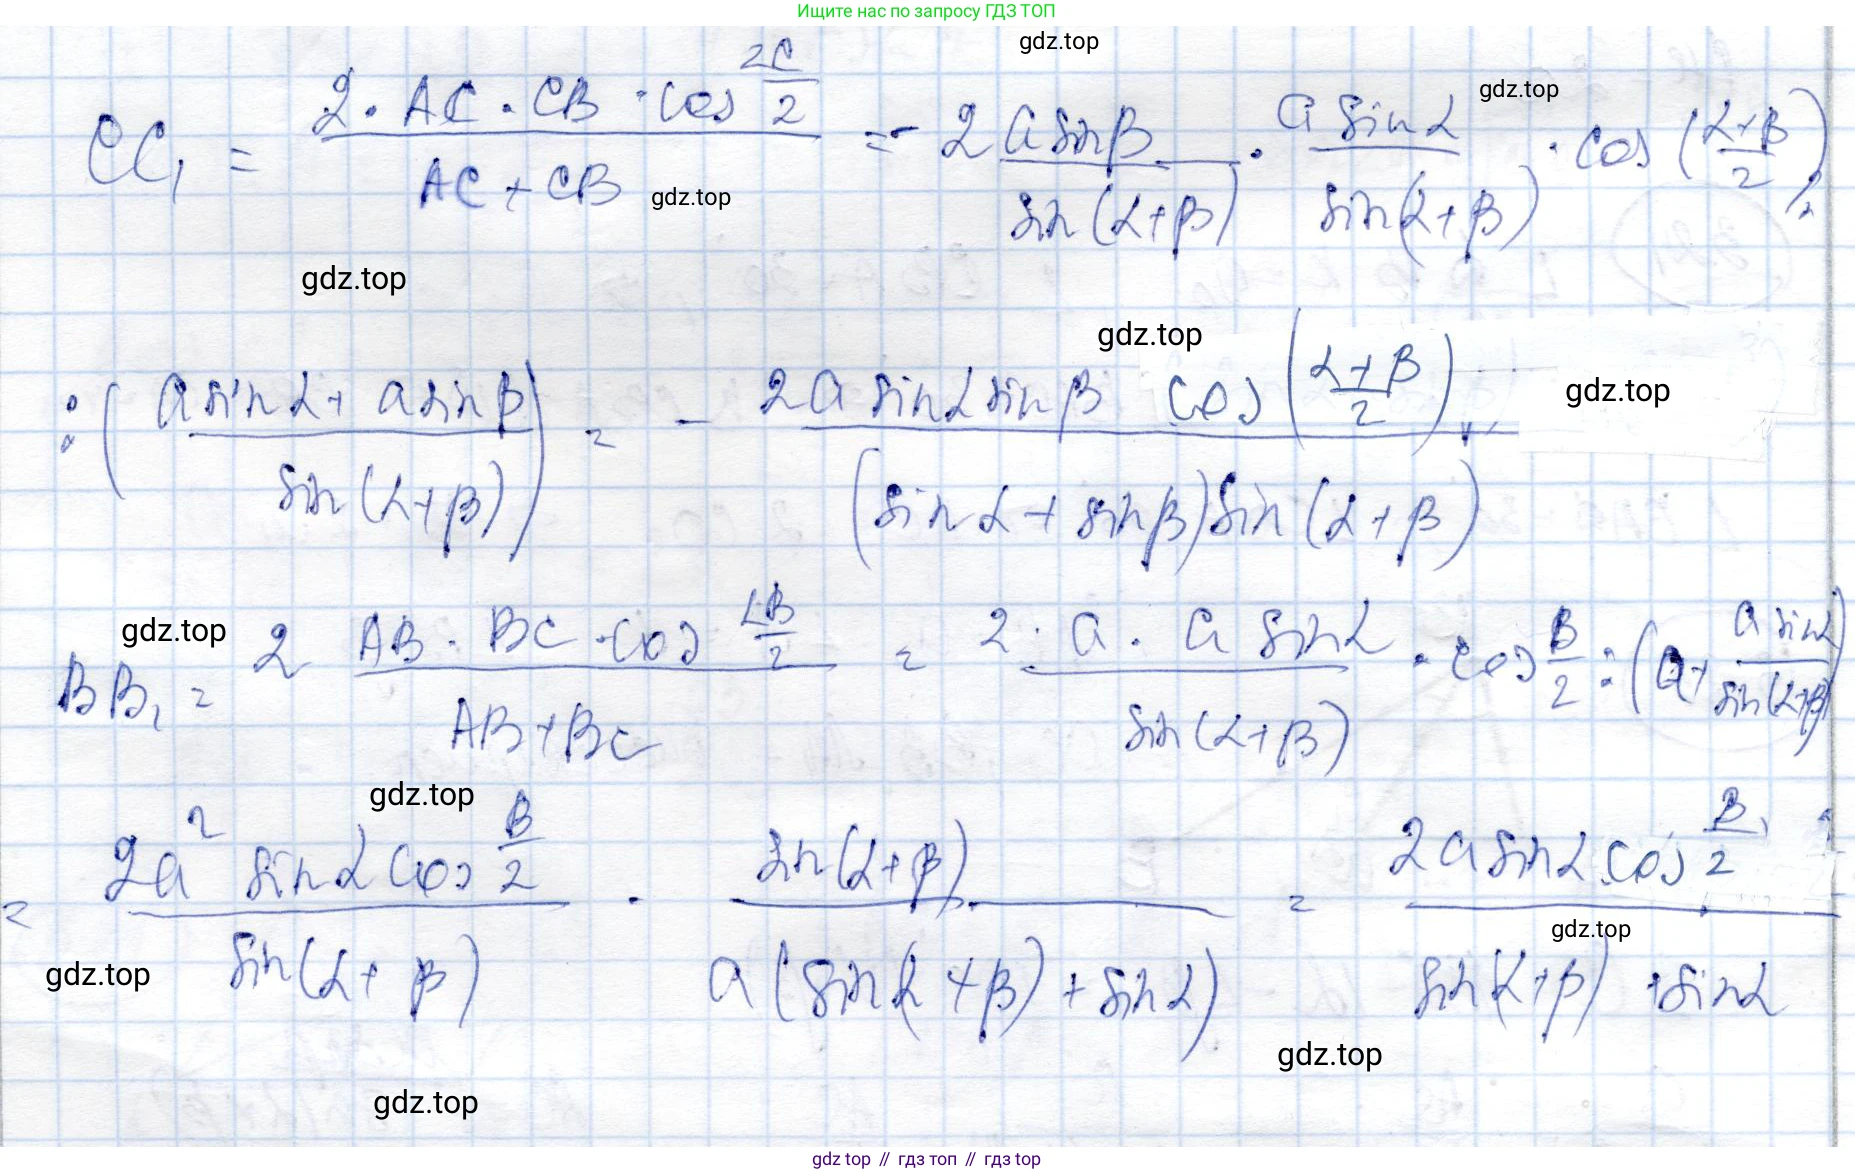 Ищите нас по запросу ГДЗ ТОП
gdz.top
gdz.top
CC₁ = (2 · AC · CB · cos ∠C/2) / (AC + CB) = - 2 (a sin β / sin(α+β)) · (a sin α / sin(α+β)) · cos((α+β)/2) :
gdz.top
gdz.top
gdz.top
gdz.top
: ((a sin α + a sin β) / sin(α+β)) = - (2a sin α sin β cos((α+β)/2)) / ((sin α + sin β) sin(α+β))
gdz.top
BB₁ = 2 (AB · BC · cos ∠B/2) / (AB + BC) = (2 · a · a sin α) / sin(α+β) · cos β/2 : (a + a sin α / sin(α+β))
gdz.top
= (2a² sin α cos β/2) / sin(α+β) · sin(α+β) / (a(sin(α+β) + sin α)) = (2a sin α cos β/2) / (sin(α+β) + sin α)
gdz.top
gdz.top
gdz.top
gdz.top
gdz top // гдз топ // gdz top